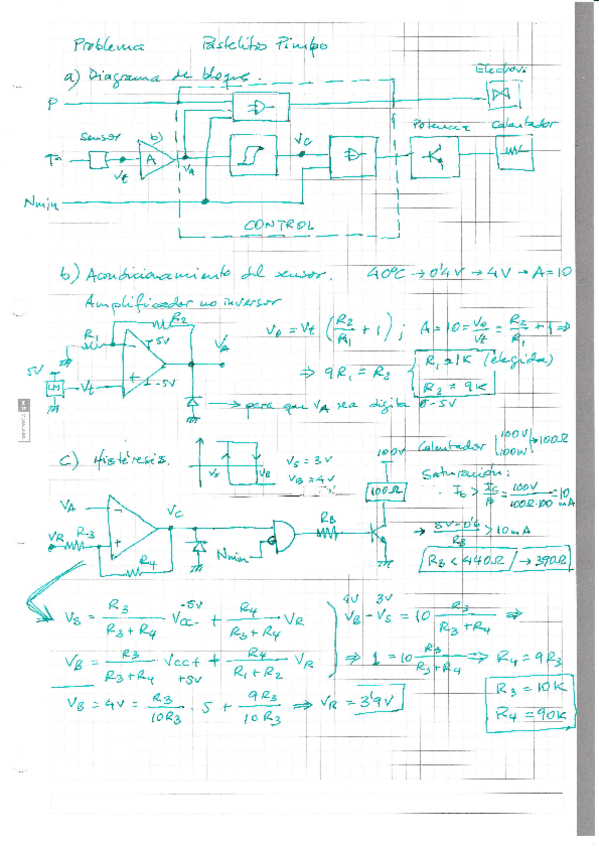 Problema Pastelitos Pimpo
a) Diagrama de bloques.
Electrov.
P
Sensor b) Vc Potencia Calentador
Tª A
Vt VA
Nmin
CONTROL
b) Acondicionamiento del sensor. 40ºC → 0'4V → 4V → A=10
Amplificador no inversor
R2
R1 5V VA
Vo = Vt (R2/R1 + 1) ; A = 10 = Vo/Vt = R2/R1 + 1 ⇒
5V LM Vt -5V
⇒ 9R1 = R2 { R1 = 1K (elegida)
R2 = 9K
→ para que VA sea digital 0-5V
c) Histéresis. Vs VB Vs = 3V
VB = 4V
100V Calentador 100V 100W → 100Ω
100Ω Saturación:
Ib > Ic/β = 100V/100Ω·100 = 10 mA
VA Vc
VR R3 R4 Nmin RB
→ 5V-0'6/RB > 10mA
RB < 440Ω → 390Ω
Vs = R3/R3+R4 Vcc- + R4/R3+R4 VR
-5V
4V 3V
VB - Vs = 10 R3/R3+R4 ⇒
VB = R3/R3+R4 Vcc+ + R4/R1+R2 VR
+5V
⇒ 1 = 10 R3/R3+R4 ⇒ R4 = 9R3
VB = 4V = R3/10R3 · 5 + 9R3/10R3 ⇒ VR = 3'9V
R3 = 10K
R4 = 90K